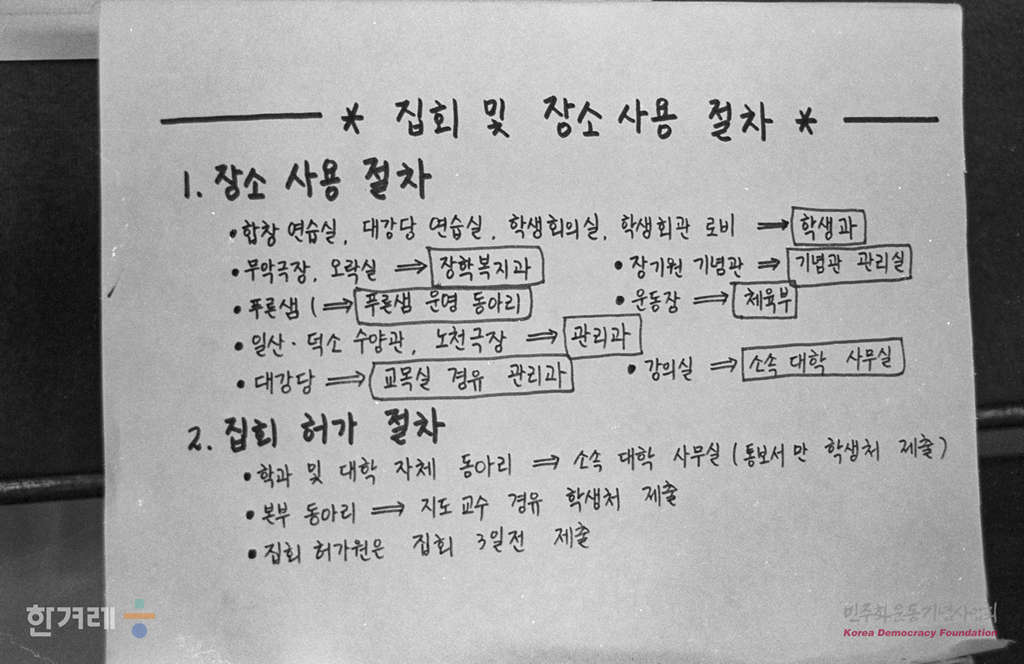 * 집회 및 장소 사용 절차 *
1. 장소 사용 절차
• 합창 연습실, 대강당 연습실, 학생회의실, 학생회관 로비 ⇒ 학생과
• 무악극장, 오락실 ⇒ 장학복지과 • 장기원 기념관 ⇒ 기념관 관리실
• 푸른샘 ( ⇒ 푸른샘 운영 동아리 • 운동장 ⇒ 체육부
• 일산·덕소 수양관, 노천극장 ⇒ 관리과
• 대강당 ⇒ 교목실 경유 관리과 • 강의실 ⇒ 소속 대학 사무실
2. 집회 허가 절차
• 학과 및 대학 자체 동아리 ⇒ 소속 대학 사무실 (통보서만 학생처 제출)
• 본부 동아리 ⇒ 지도교수 경유 학생처 제출
• 집회 허가원은 집회 3일전 제출
한겨레
민주화운동기념사업회
Korea Democracy Foundation